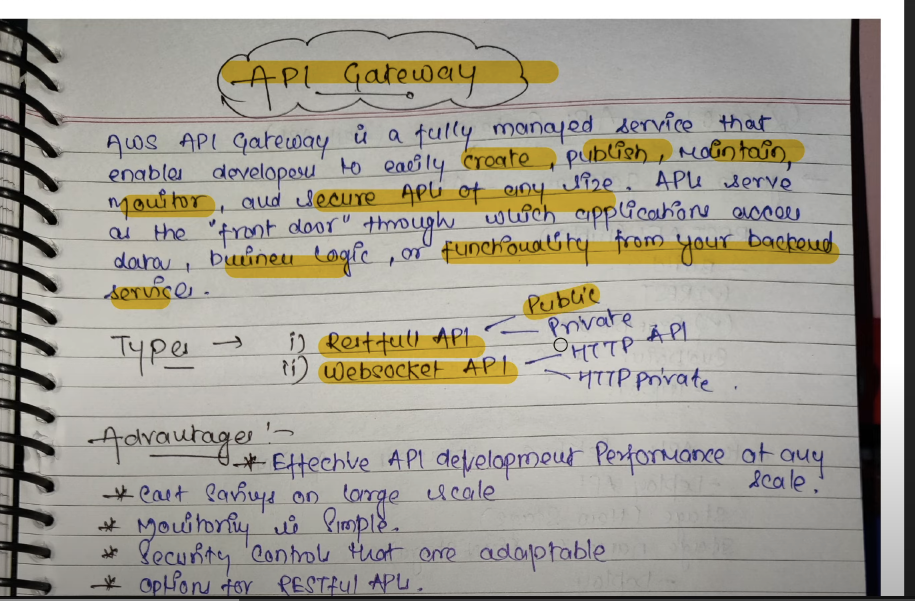 API Gateway
AWS API Gateway is a fully managed service that
enables developers to easily create, publish, maintain,
monitor, and secure APIs of any size. APIs serve
as the "front door" through which applications access
data, business logic, or functionality from your backend
services.
Types → i) Restfull API Public
Private
ii) Websocket API HTTP API
HTTP private.
Advantages :-
* Effective API development Performance at any scale.
* Cost Savings on large scale
* Monitoring is Simple.
* Security Controls that are adaptable
* Option for RESTful APIs.